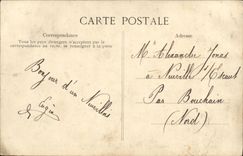 CARTE POSTALE
Correspondance
Tous les pays étrangers n'acceptent pas la
correspondance au recto, se renseigner à la poste
Adresse
Bonjour d'un
Eugène
Mr Alexandre Jonas
à Neuville s/Escaut
Par Bouchain
(Nord)